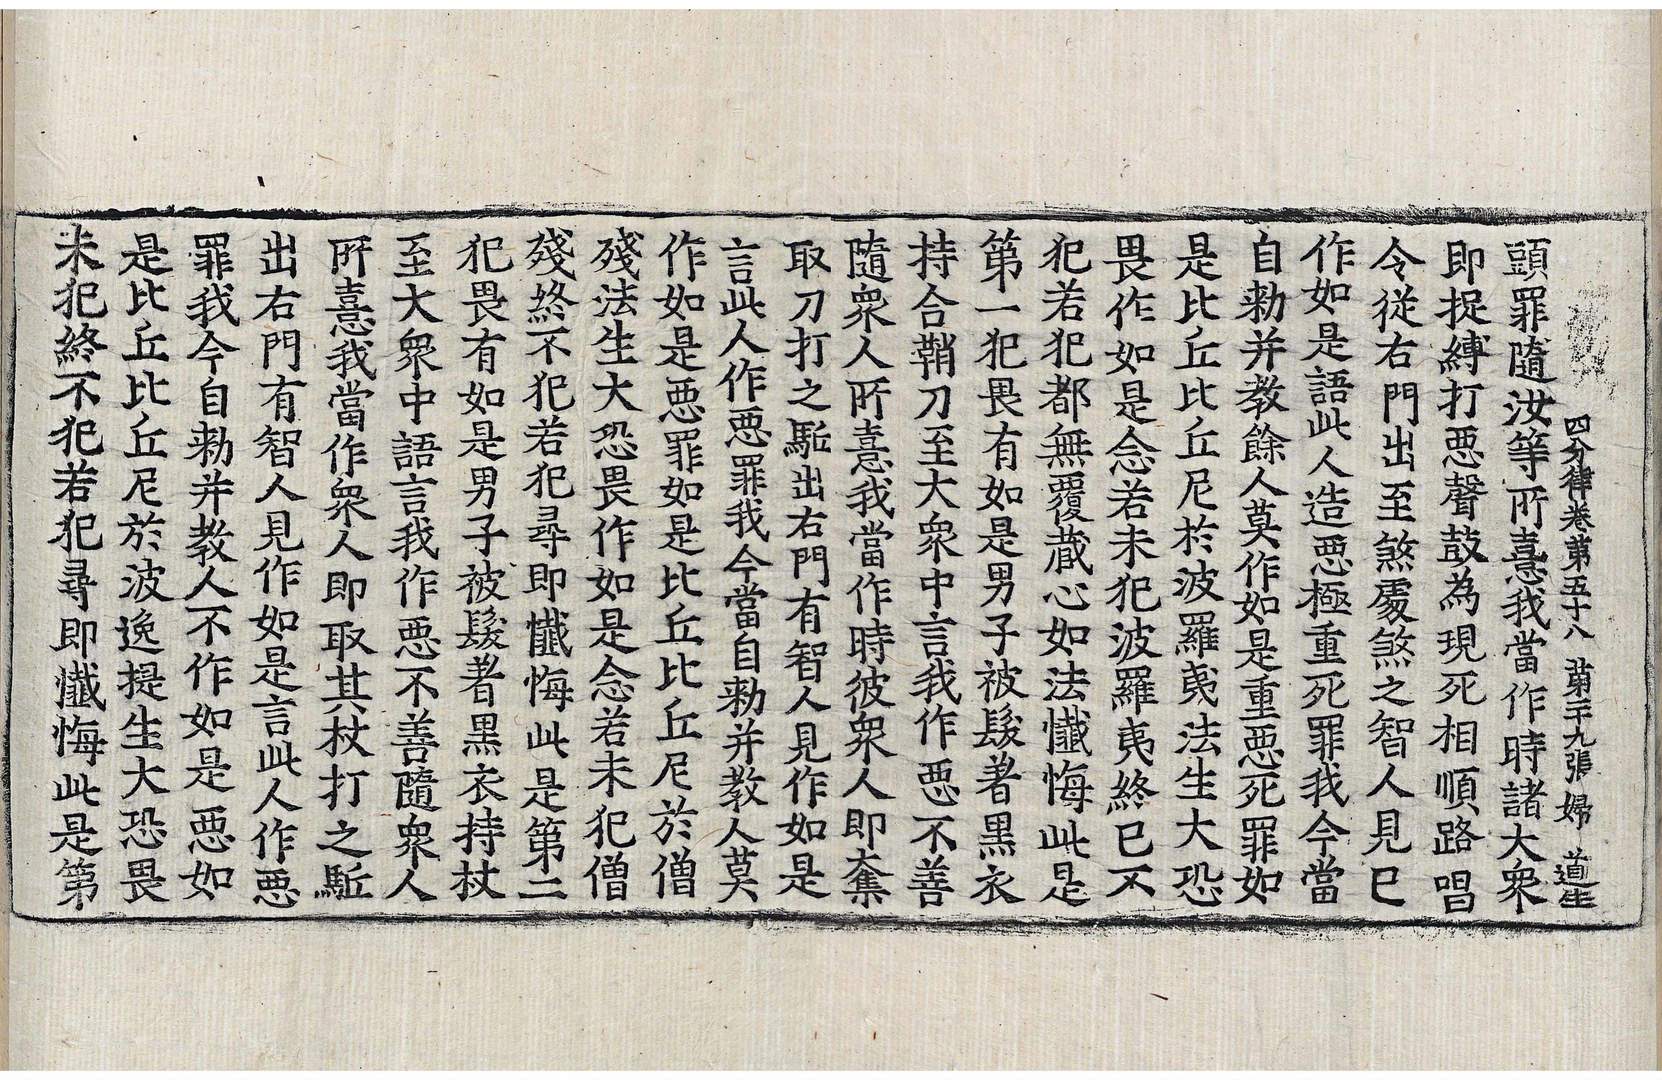 四分律卷第五十八 苐三十九張 婦 道生
頭罪隨汝等所憙我當作時諸大衆
即捉縛打惡聲鼓為現死相順路唱
令從右門出至煞處煞之智人見已
作如是語此人造惡極重死罪我今當
自勑并教餘人莫作如是重惡死罪如
是比丘比丘尼於波羅夷法生大恐
畏作如是念若未犯波羅夷終已不
犯若犯都無覆蔵心如法懺悔此是
第一犯畏有如是男子被髮著黑衣
持合鞘刀至大衆中言我作惡不善
隨衆人所憙我當作時彼衆人即奪
取刀打之駈出右門有智人見作如是
言此人作惡罪我今當自勑并教人莫
作如是惡罪如是比丘比丘尼於僧
殘法生大恐畏作如是念若未犯僧
殘終不犯若犯尋即懺悔此是第二
犯畏有如是男子被髮著黑衣持杖
至大衆中語言我作惡不善隨衆人
所憙我當作衆人即取其杖打之駈
出右門有智人見作如是言此人作惡
罪我今自勑并教人不作如是惡如
是比丘比丘尼於波逸提生大恐畏
未犯終不犯若犯尋即懺悔此是第